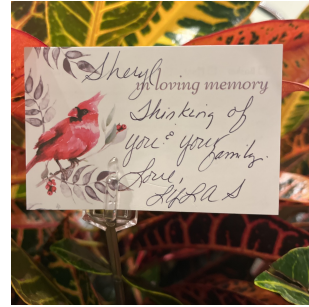 Sheryl
in loving memory
Thinking of
you & your
family.
Love,
Lyla S